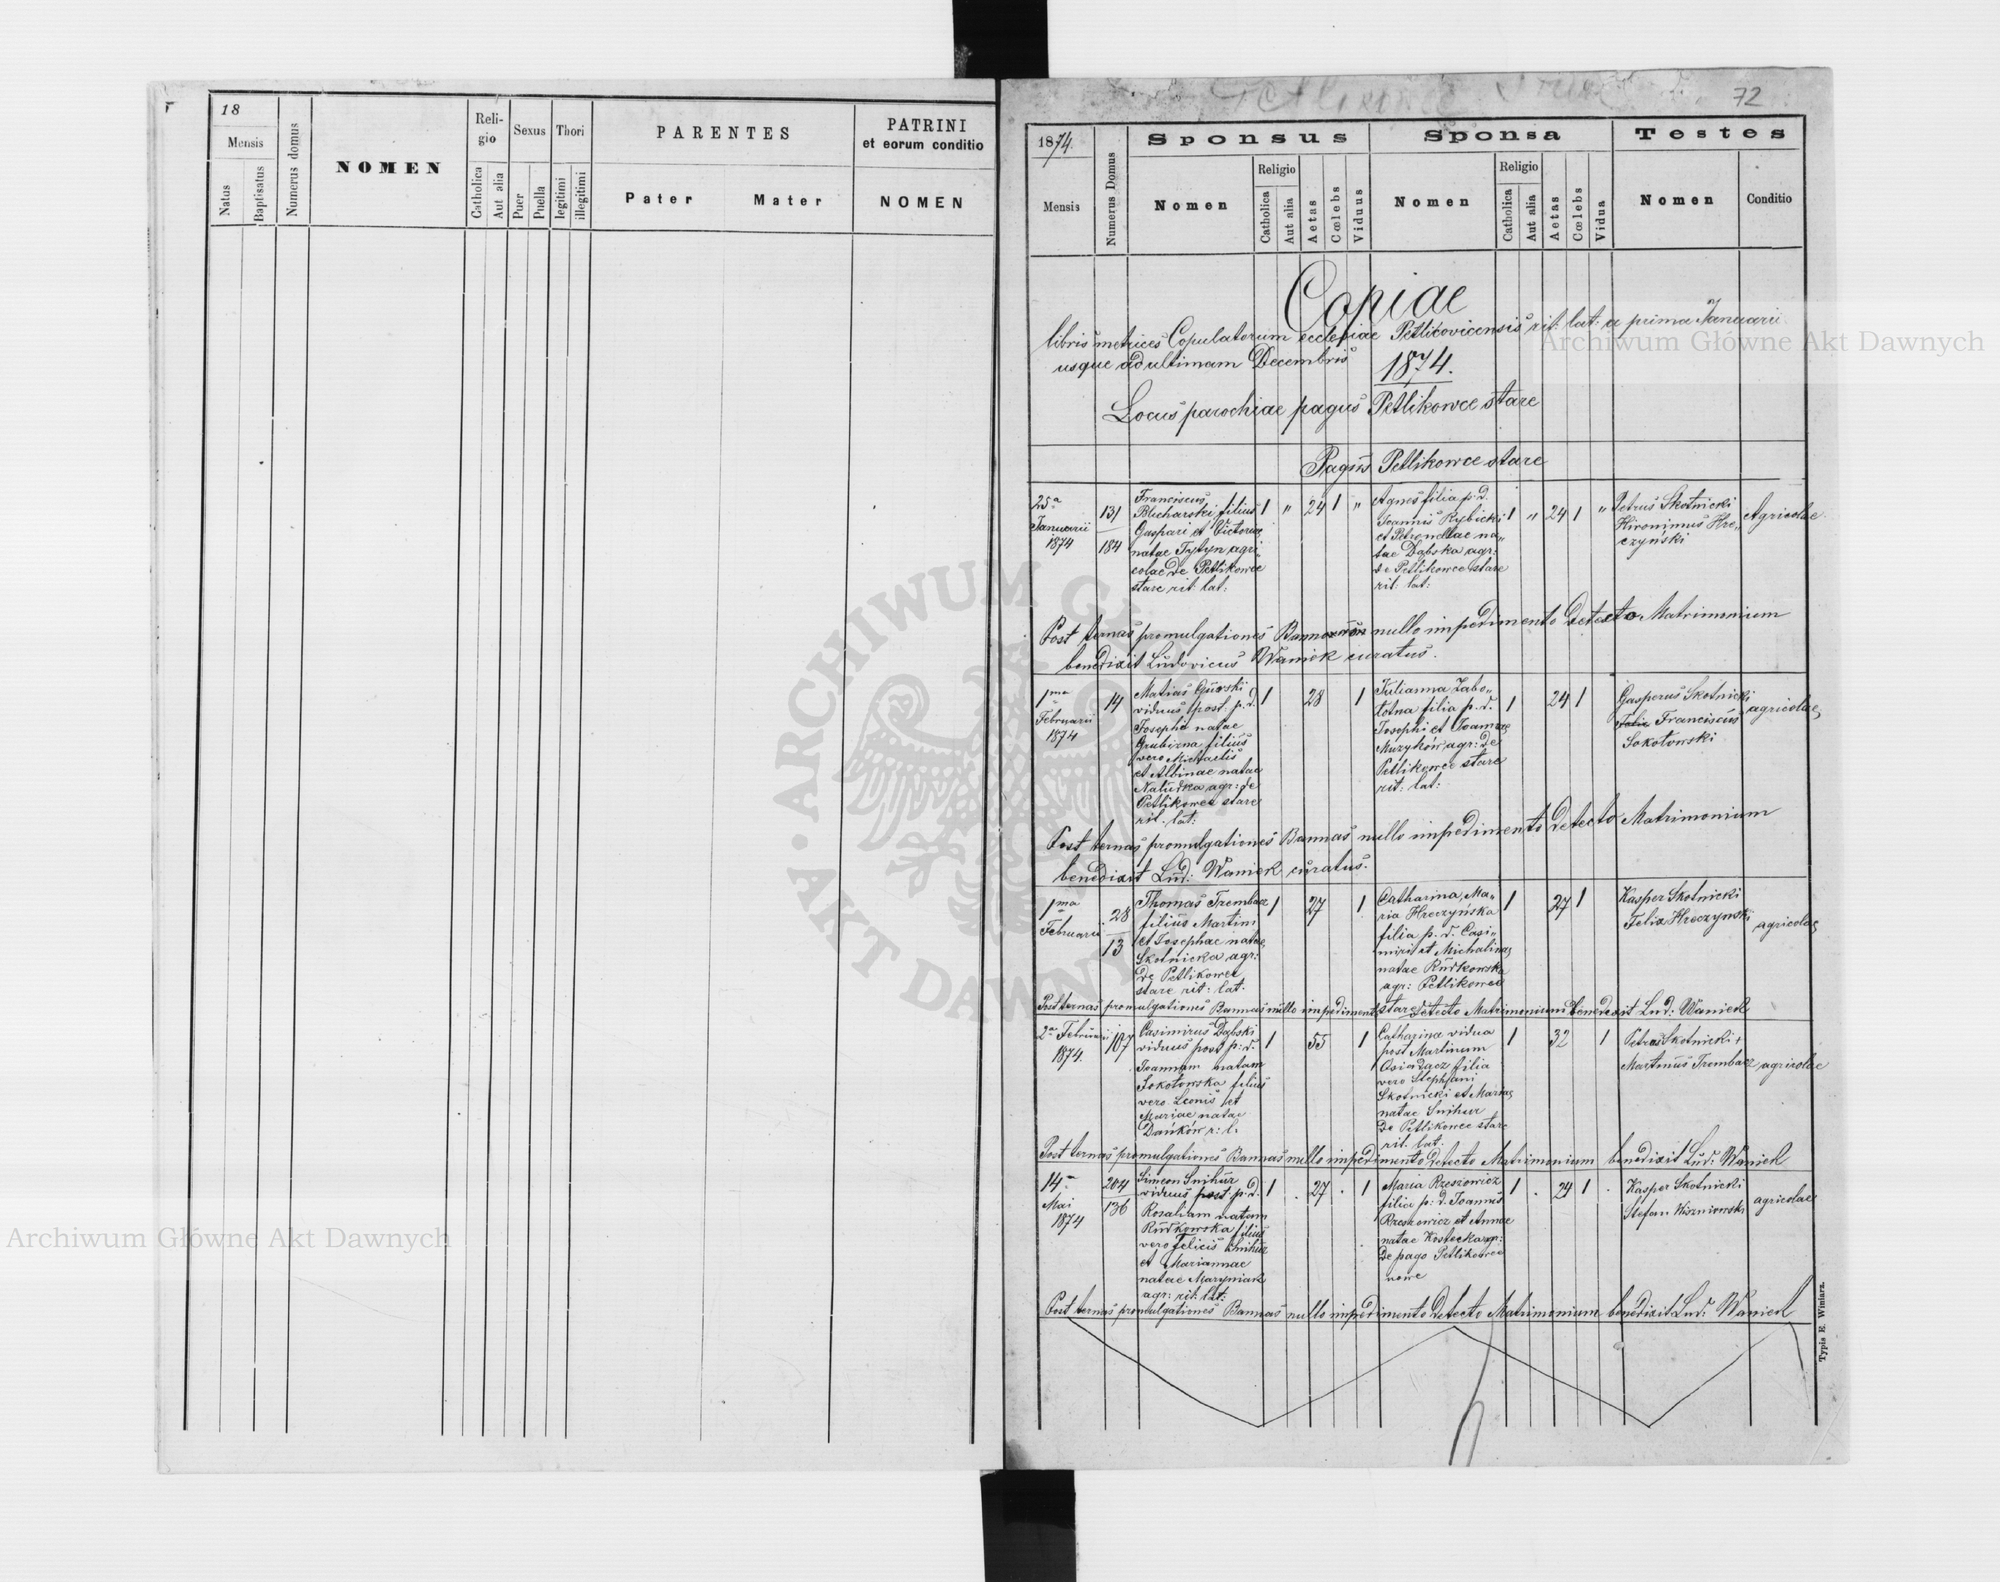 18
Mensis
Natus
Baptisatus
Numerus domus
NOMEN
Religio
Catholica
Aut alia
Sexus
Puer
Puella
Thori
legitimi
illegitimi
PARENTES
Pater
Mater
PATRINI
et eorum conditio
NOMEN
72
1874.
Mensis
Numerus Domus
Sponsus
Nomen
Religio
Catholica
Aut alia
Aetas
Cœlebs
Viduus
Sponsa
Nomen
Religio
Catholica
Aut alia
Aetas
Cœlebs
Vidua
Testes
Nomen
Conditio
Copiae
libris metrices Copulatorum ecclesiae Petlicovicensis rit: lat: a prima Januarii
usque ad ultimam Decembris 1874.
Locus parochiae pagus Petlikowce stare
Pagus Petlikowce stare
25a
Januarii
1874
131
184
Franciscus
Blicharski filius
Gaspari et Victoriae
natae Tytyn agri„
colae de Petlikowce
stare rit: lat:
1 „ 24 1 „
Agnes filia p. d.
Joannis Rybicki
et Petronellae na„
tae Dąbska agr:
de Petlikowce stare
rit: lat:
1 „ 24 1 „
Petrus Skotnicki
Hironimus Hre„
czyński
Agricolae
Post ternas promulgationes Bannorum nullo impedimento detecto Matrimonium
benedixit Ludovicus Waniek curatus.
1ma
Februarii
1874
14
Matias Gurski
viduus post. p. d.
Josepha natae
Grubizna filius
vero Michaelis
et Albinae natae
Naludka agr: de
Petlikowce stare
rit. lat:
1 28 1
Julianna Zabo„
totna filia p. d.
Josephi et Joannae
Muzyków agr: de
Petlikowce stare
rit: lat:
1 24 1
Gasperus Skotnicki
Franciscus
Sokołowski
agricolae
Post ternas promulgationes Bannas nullo impedimento detecto Matrimonium
benedixit Lud: Waniek curatus.
1ma
Februarii
28
13
Thomas Trembacz
filius Martini
et Josephae natae
Skotnicka agr:
de Petlikowce
stare rit: lat.
1 27 1
Catharina Ma„
ria Hreczyńska
filia p. d. Casi„
miri et Michalinae
natae Rudkowska
agr: Petlikowce
stare
1 27 1
Kasper Skotnicki
Felix Hreczynski
agricolae
Post ternas promulgationes Bannas nullo impedimento detecto Matrimonium benedixit Lud: Waniek
2a Februarii
1874.
107
Casimirus Dąbski
viduus post p: d.
Joannam natam
Sokołowska filius
vero Leonis et
Mariae natae
Dańków r: l.
1 55 1
Catharina vidua
post Martinum
Osiadacz filia
vero Stephani
Skotnicki et Mariae
natae Snihur
de Petlikowce stare
rit. lat.
1 32 1
Petrus Skotnicki +
Martinus Trembacz
agricolae
Post ternas promulgationes Bannas nullo impedimento detecto Matrimonium benedixit Lud: Waniek
14
Mai
1874
204
136
Simeon Snihur
viduus post. p. d.
Rosaliam natam
Rudkowska filius
vero Felicis Snihur
et Mariannae
natae Maryniak
agr: rit: lat:
1 . 27 . 1
Maria Rzeszowicz
filia p: d. Joannis
Rzeszowicz et Annae
natae Kostecka agr:
de pago Petlikowce
nowe
1 . 24 1 .
Kasper Skotnicki
Stefan Wiszniowski
agricolae
Post ternas promulgationes Bannas nullo impedimento detecto Matrimonium benedixit Lud: Waniek
Typis E. Winiarz.
Archiwum Główne Akt Dawnych
Archiwum Główne Akt Dawnych
ARCHIWUM GŁÓWNE AKT DAWNYCH